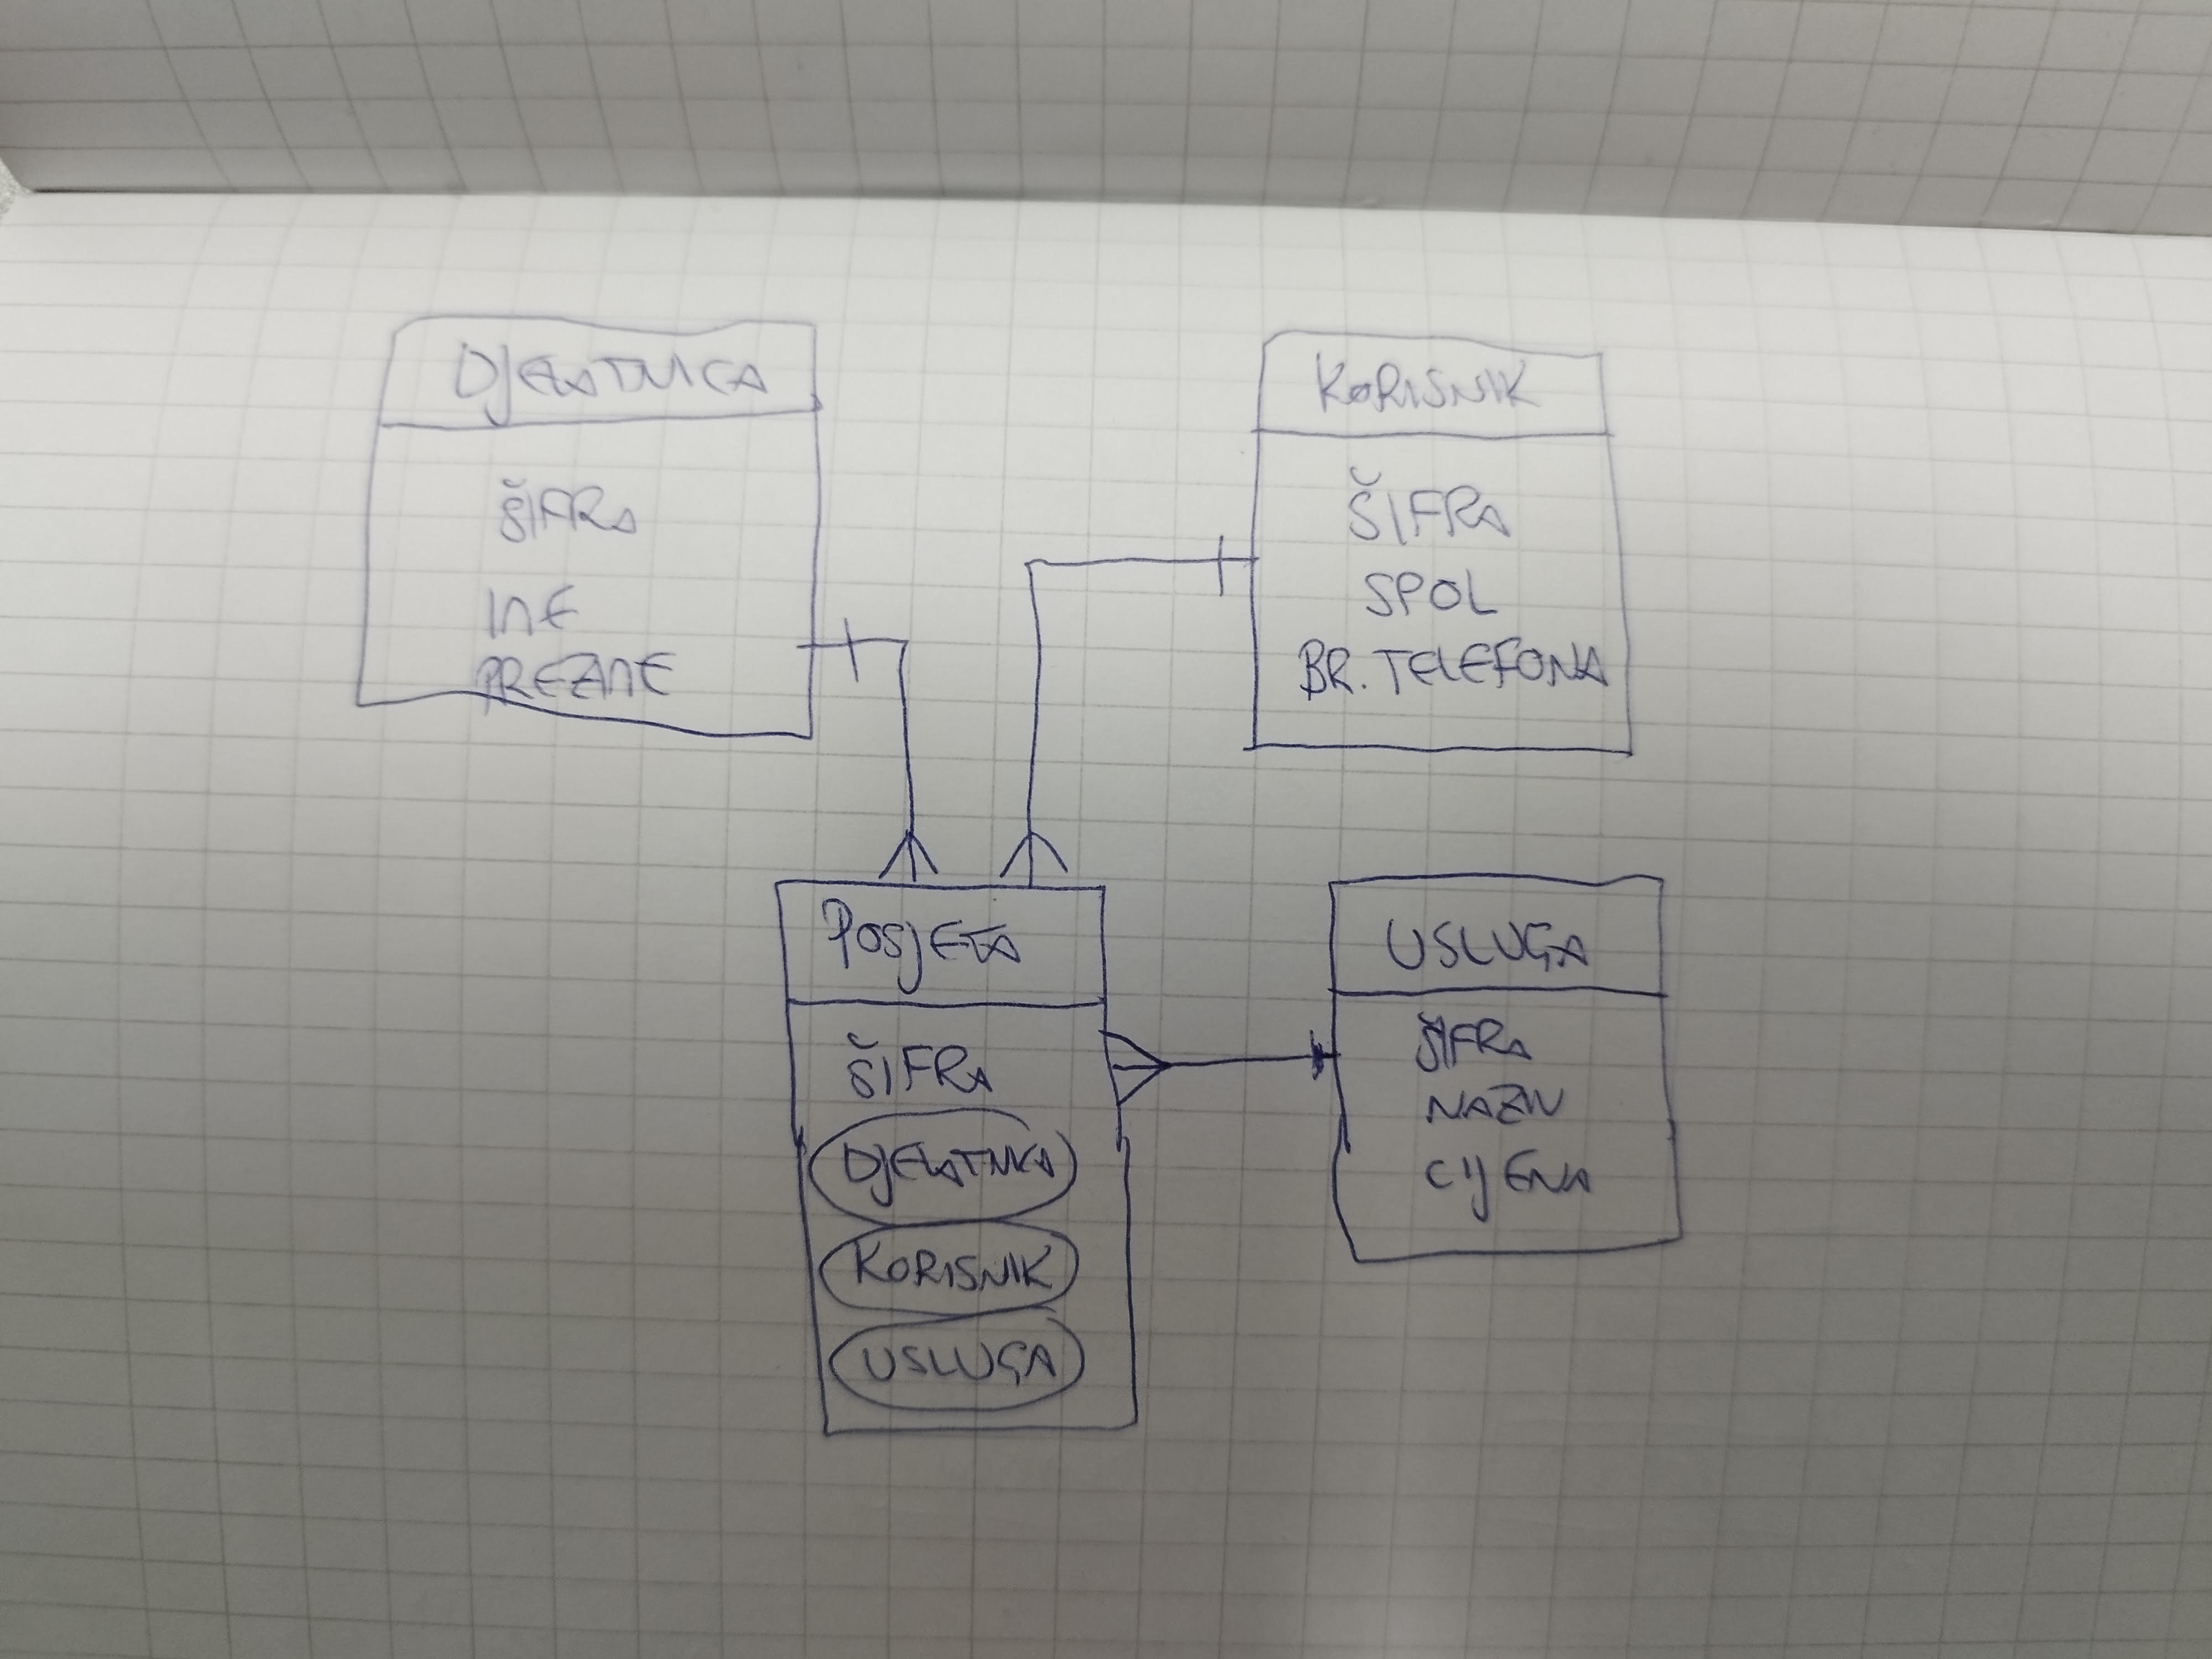 DJELATNICA
ŠIFRA
IME
PREZIME
KORISNIK
ŠIFRA
SPOL
BR. TELEFONA
POSJETA
ŠIFRA
DJELATNICA
KORISNIK
USLUGA
USLUGA
ŠIFRA
NAZIV
CIJENA